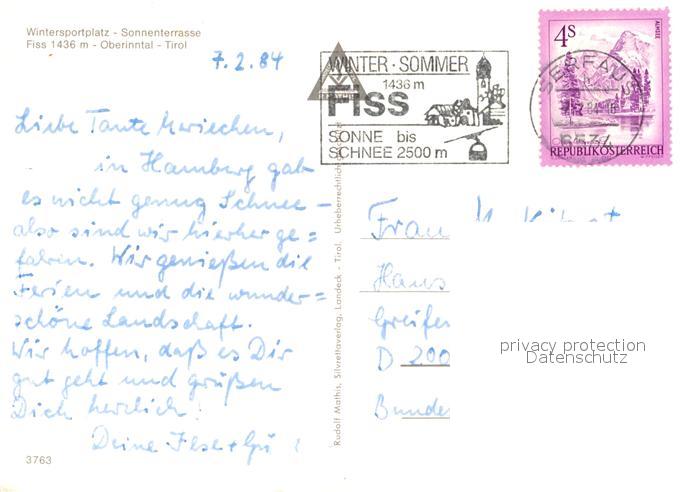 Wintersportplatz - Sonnenterrasse
Fiss 1436 m - Oberinntal - Tirol
7.2.84
WINTER · SOMMER
1436 m
Fiss
SONNE bis
SCHNEE 2500 m
4S
ALMSEE
SERFAUS
6534
REPUBLIK ÖSTERREICH
Liebe Tante Mariechen,
in Hamburg gab
es nicht genug Schnee -
also sind wir hierher ge=
fahren. Wir genießen die
Ferien und die wunder=
schöne Landschaft.
Wir hoffen, daß es Dir
gut geht und grüßen
Dich herzlich!
Deine Ilse +
Rudolf Mathis, Silvrettaverlag, Landeck - Tirol. Urheberrechtlich
Frau
Hans
Greifer
D 200
Bunde
privacy protection
Datenschutz
3763